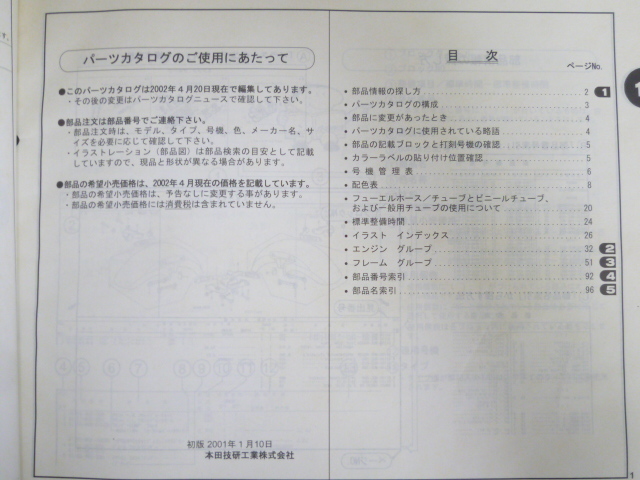 パーツカタログのご使用にあたって
●このパーツカタログは2002年4月20日現在で編集してあります。
・その後の変更はパーツカタログニュースで確認して下さい。
●部品注文は部品番号でご連絡下さい。
・部品注文時は、モデル、タイプ、号機、色、メーカー名、サ
イズを必要に応じて確認して下さい。
・イラストレーション（部品図）は部品検索の目安として記載
していますので、現品と形状が異なる場合があります。
●部品の希望小売価格は、2002年4月現在の価格を記載しています。
・部品の希望小売価格は、予告なしに変更する事があります。
・部品の希望小売価格には消費税は含まれていません。
初版 2001年1月10日
本田技研工業株式会社
目 次
ページNo.
• 部品情報の探し方 2 1
• パーツカタログの構成 3
• 部品に変更があったとき 4
• パーツカタログに使用されている略語 4
• 部品の記載ブロックと打刻号機の確認 5
• カラーラベルの貼り付け位置確認 5
• 号機管理表 6
• 配色表 8
• フューエルホース／チューブとビニールチューブ、
および一般用チューブの使用について 20
• 標準整備時間 24
• イラスト インデックス 26
• エンジン グループ 32 2
• フレーム グループ 51 3
• 部品番号索引 92 4
• 部品名索引 96 5
1
1